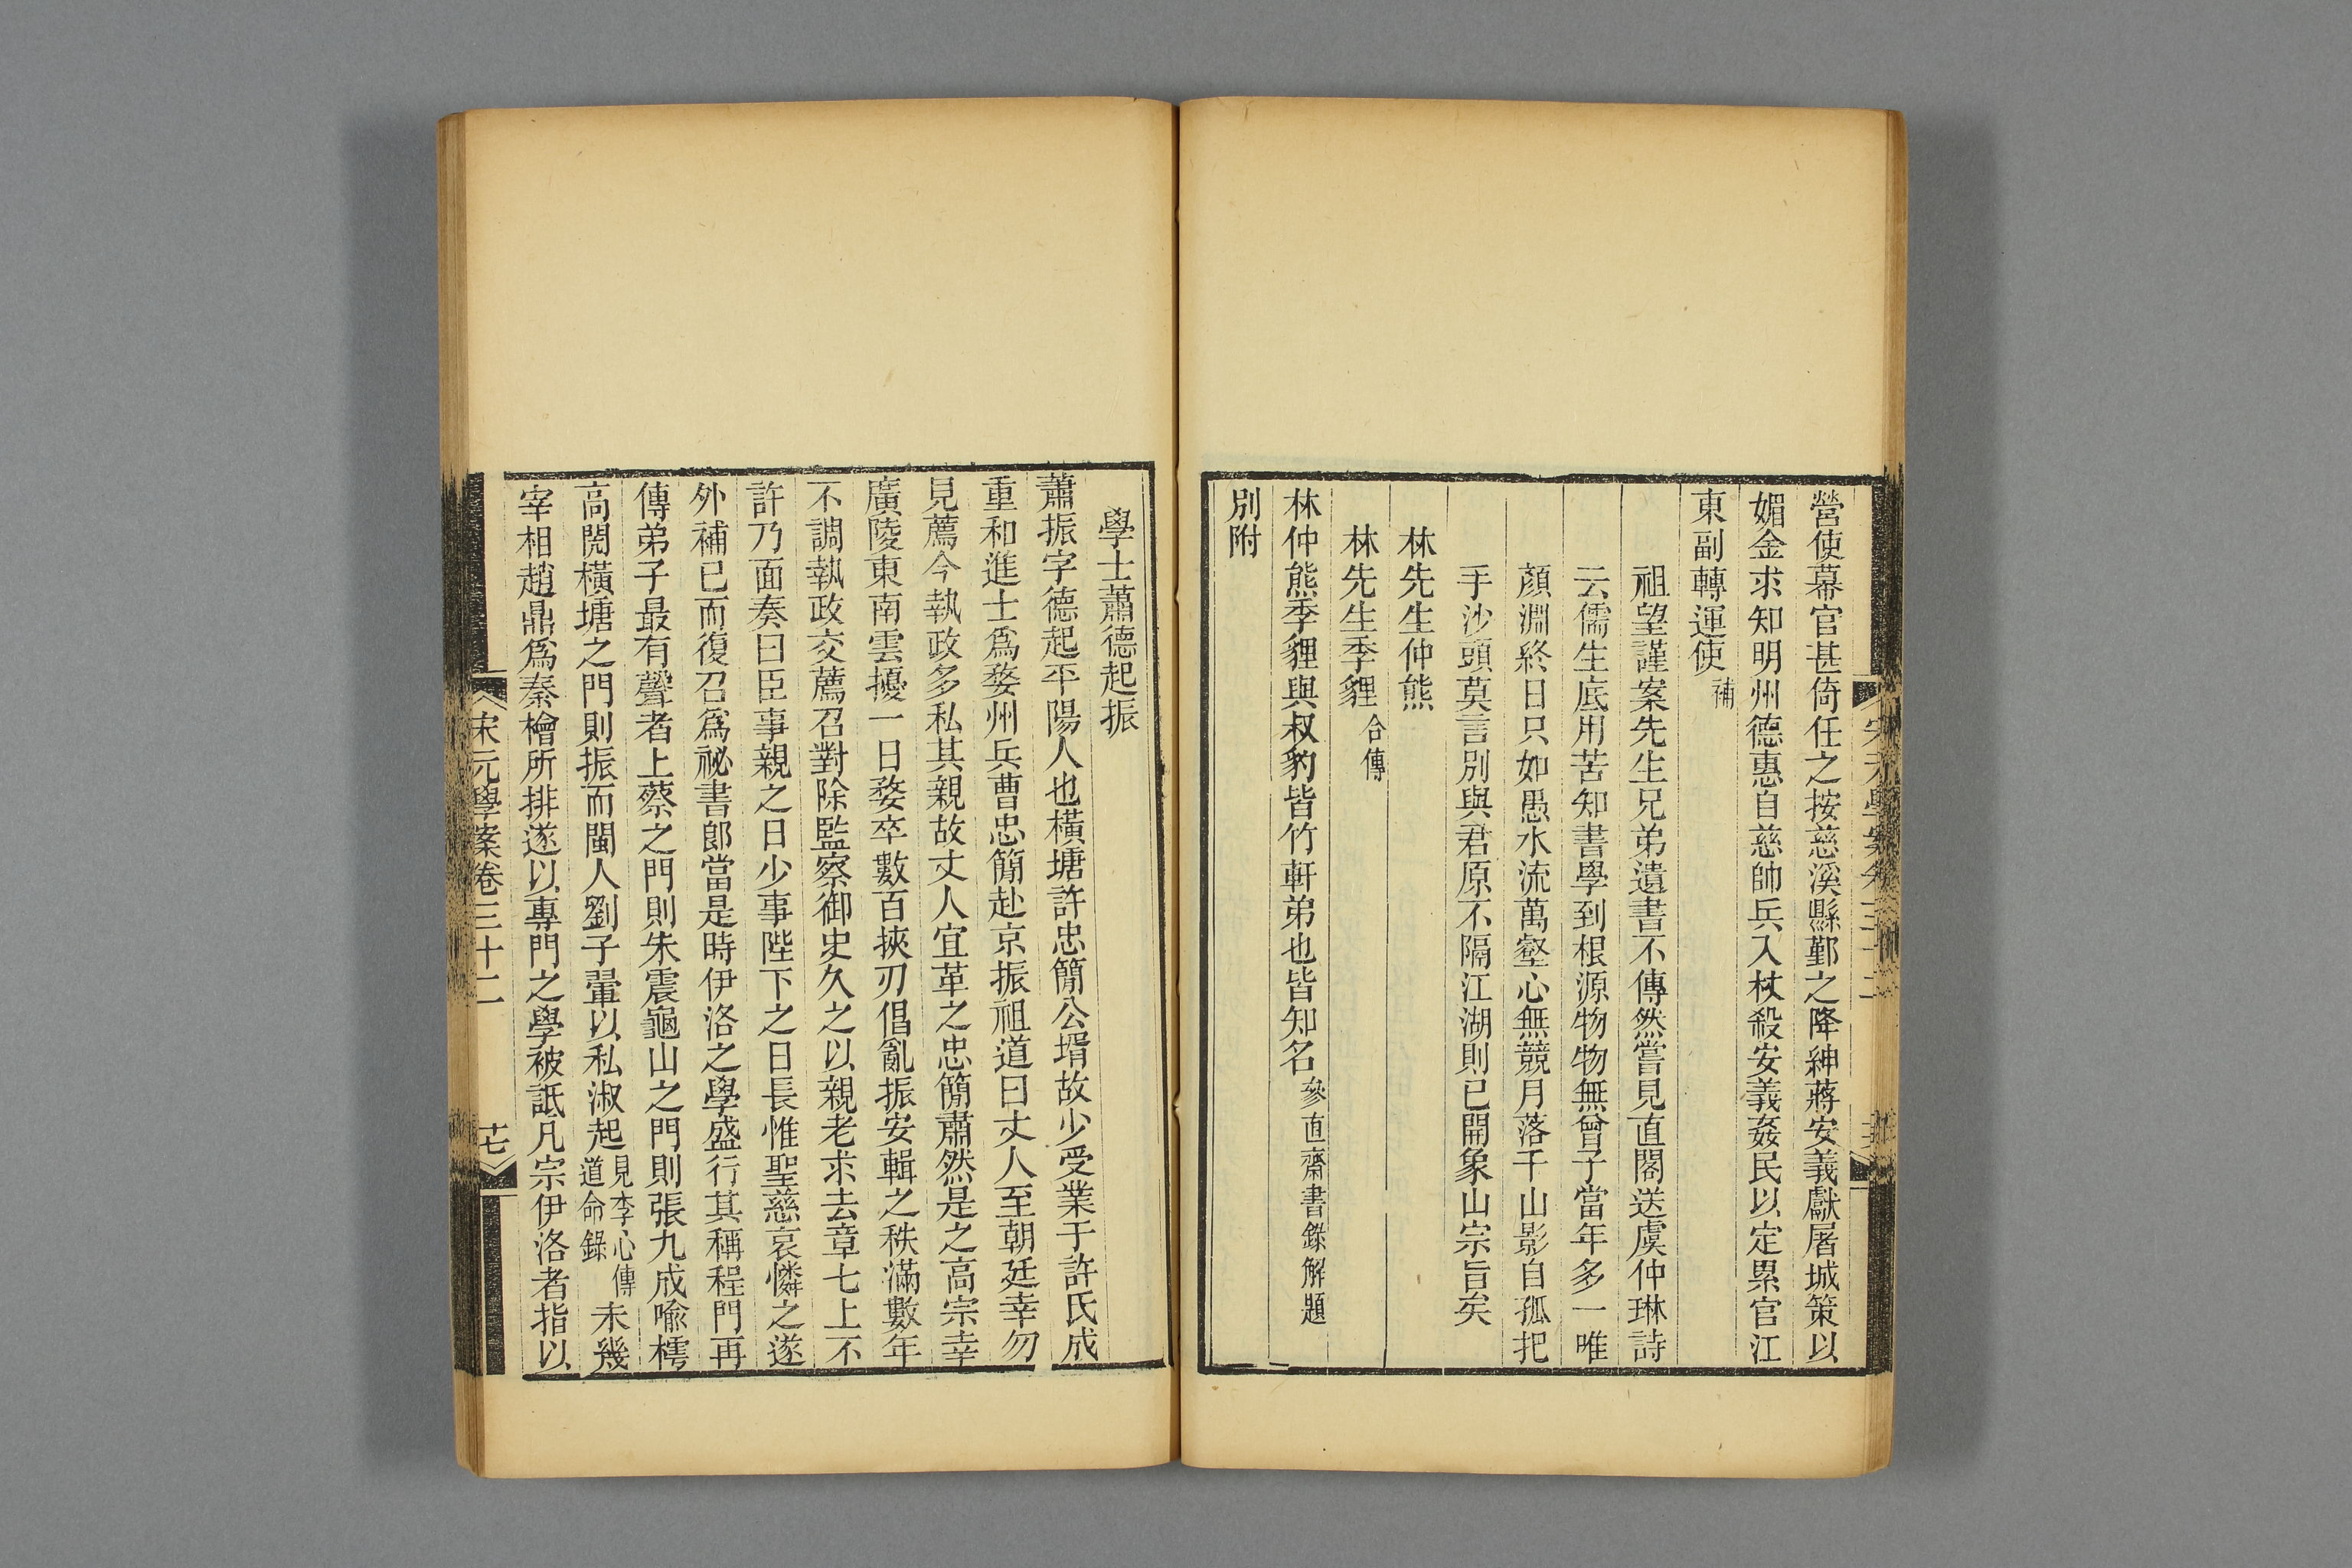 營使幕官甚倚任之按慈溪縣鄞之降紳蔣安義獻屠城策以
媚金求知明州德惠自慈帥兵入杖殺安義姦民以定累官江
東副轉運使補
祖望謹案先生兄弟遺書不傳然嘗見直閣送虞仲琳詩
云儒生底用苦知書學到根源物物無曾子當年多一唯
顏淵終日只如愚水流萬壑心無競月落千山影自孤把
手沙頭莫言別與君原不隔江湖則已開象山宗旨矣
林先生仲熊
林先生季貍合傳
林仲熊季貍與叔豹皆竹軒弟也皆知名參直齋書錄解題
別附
學士蕭德起振
蕭振字德起平陽人也橫塘許忠簡公壻故少受業于許氏成
重和進士爲婺州兵曹忠簡赴京振祖道曰丈人至朝廷幸勿
見薦今執政多私其親故丈人宜革之忠簡肅然是之高宗幸
廣陵東南雲擾一日婺卒數百挾刃倡亂振安輯之秩滿數年
不調執政交薦召對除監察御史久之以親老求去章七上不
許乃面奏曰臣事親之日少事陛下之日長惟聖慈哀憐之遂
外補已而復召爲祕書郎當是時伊洛之學盛行其稱程門再
傳弟子最有聲者上蔡之門則朱震龜山之門則張九成喻樗
高閌橫塘之門則振而閩人劉子翬以私淑起見李心傳道命錄未幾
宰相趙鼎爲秦檜所排遂以專門之學被詆凡宗伊洛者指以
宋元學案卷三十二
十七